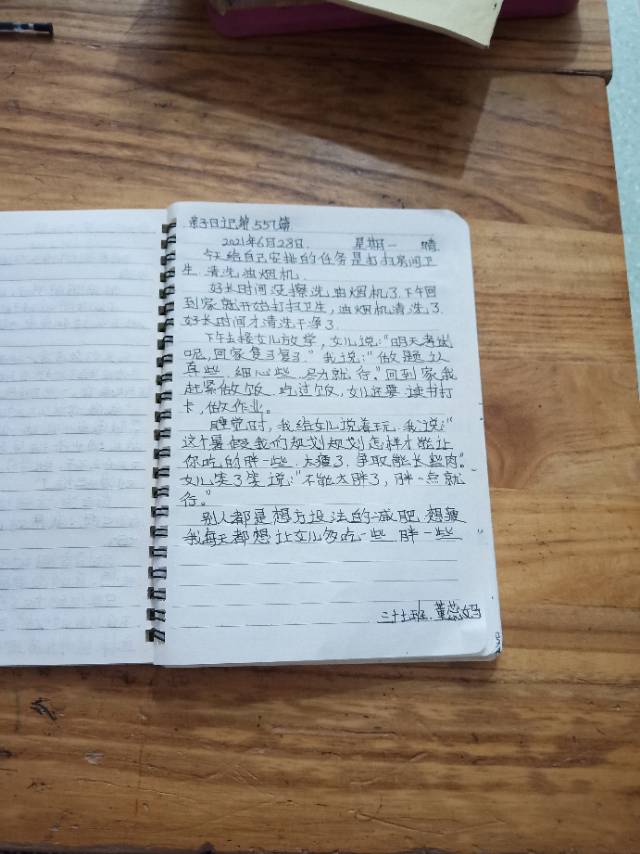 亲子日记第557篇
2021年6月28日. 星期一 晴
今天给自己安排的任务是打扫房间卫
生.清洗油烟机.
好长时间没擦洗油烟机了.下午回
到家就开始打扫卫生,油烟机清洗了
好长时间才清洗干净了.
下午去接女儿放学,女儿说:"明天考试
呢,回家复习复习."我说:"做题认
真些.细心些.尽力就行."回到家我
赶紧做饭.吃过饭,女儿还要读书打
卡,做作业。
睡觉时,我给女儿说着玩.我说:"
这个暑假我们规划规划怎样才能让
你吃的胖一些.太瘦了.争取能长些肉."
女儿笑了笑说:"不能太胖了,胖一点就
行。"
别人都是想方设法的减肥.想瘦
我每天都想让女儿多吃一些 胖一些
三十七班.董蕊妈